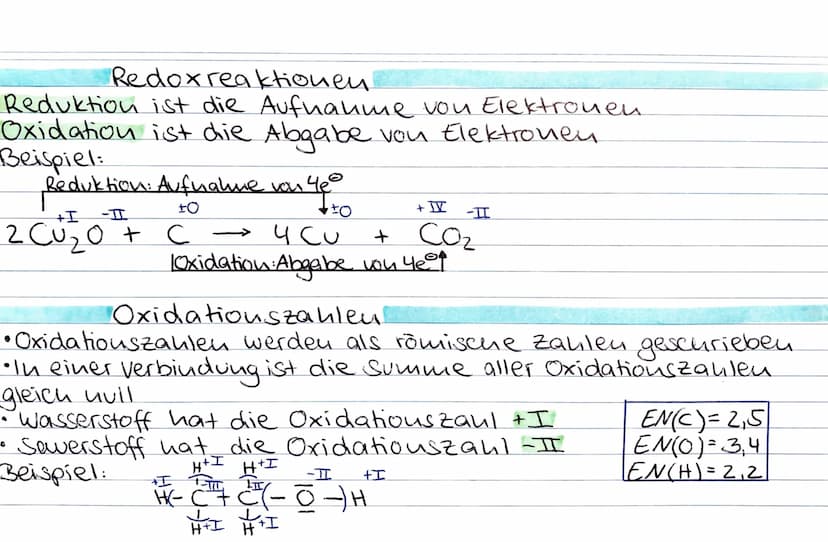 Redoxreaktionen
Reduktion ist die Aufnahme von Elektronen
Oxidation ist die Abgabe von Elektronen
Beispiel:
Reduktion: Aufnahme von 4e⊖
+I -II ±0 ±0 +IV -II
2 Cu₂O + C → 4 Cu + CO₂
Oxidation: Abgabe von 4e⊖
Oxidationszahlen
• Oxidationszahlen werden als römische Zahlen geschrieben
• In einer Verbindung ist die Summe aller Oxidationszahlen
gleich null
• Wasserstoff hat die Oxidationszahl +I
• Sauerstoff hat die Oxidationszahl -II
EN(C)= 2,5
EN(O)= 3,4
EN(H)= 2,2
Beispiel:
H+I H+I
+I -III -II +I
H(- C + C(- O -)H
H+I H+I